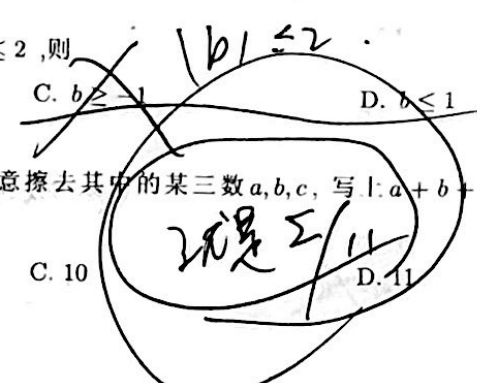 |b| ≤ 2 .
≤ 2 ,则
C. b ≥ -1 D. b ≤ 1
意擦去其中的某三数 a, b, c, 写上 a + b +
Σ / 11
C. 10 D. 11